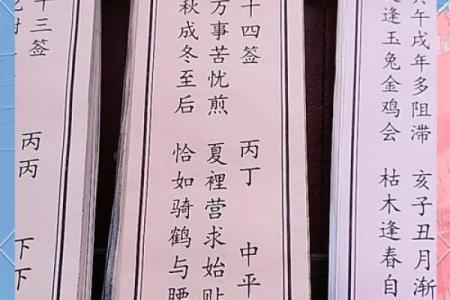 午戌年多阻滞 亥子丑月渐
逢玉兔金鸡会 枯木逢春自
十四签 丙丁 中平
万事苦忧煎 夏裡营求始贴
秋成冬至后 恰如骑鹤与腰
十三签 丙丙 下下